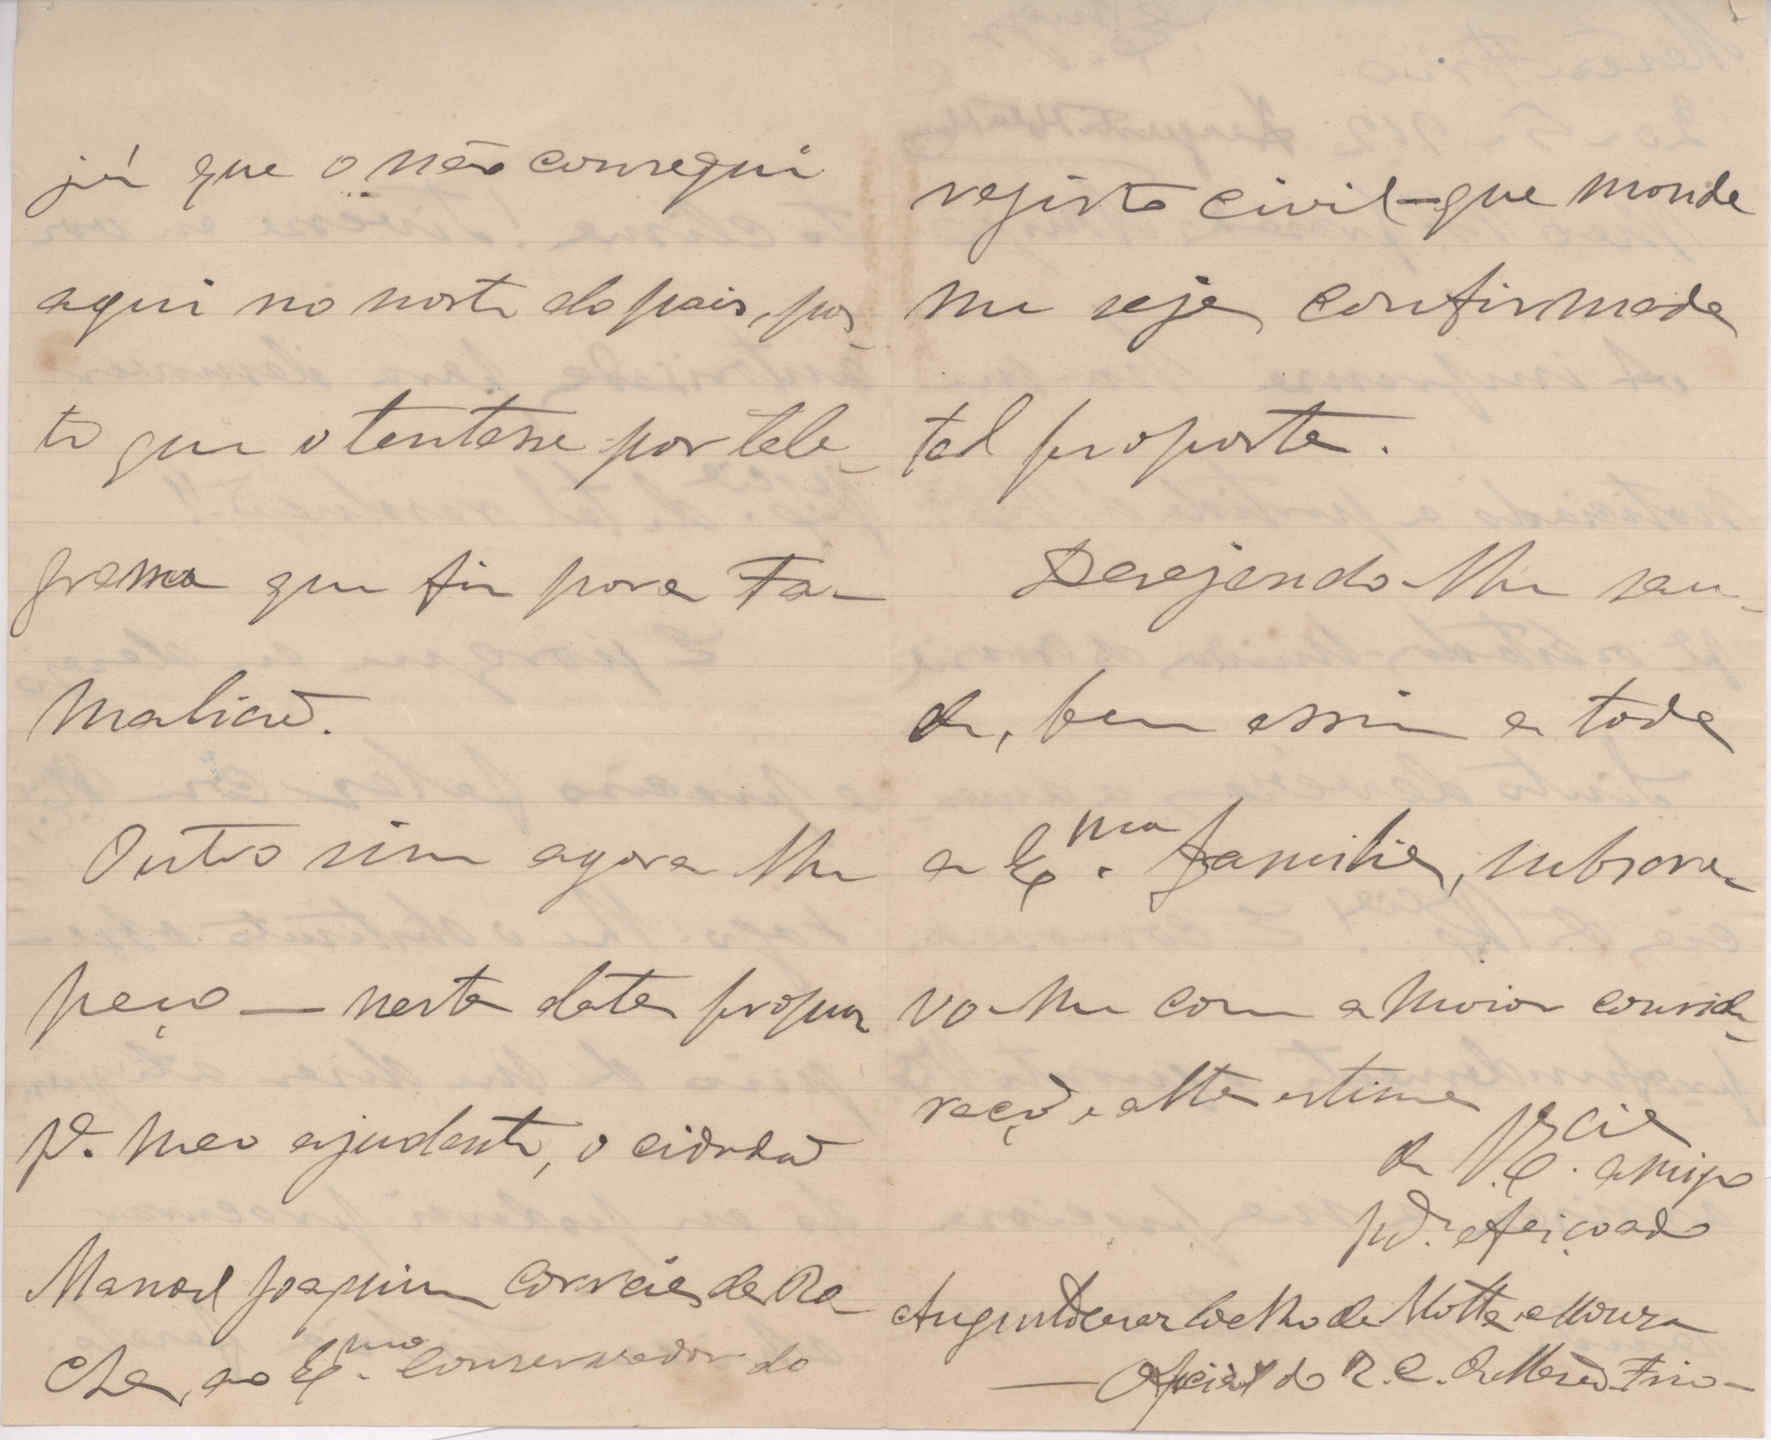 já que o não consegui
aqui no norte do pais, pos-
to que o tentasse por tele-
grama que fiz para Fa-
malicão.
Outro sim agora lhe
peço — nesta data propuz
p.ª meu ajudante, o cidadão
Manoel Joaquim Correia da Ro-
cha, ao Ex.mo Conservador do
registo civil - que mande
me seja confirmada
tal proposta.
Desejando-lhe sau-
de, bem assim a toda
a Ex.ma familia, subscre-
vo-me com a maior conside-
ração e alta estima
de V. Ex.cia amigo
afeiçoado
Augusto Cesar Coelho da Motta e Moura
— Oficial do R. C. de Mesão Frio —